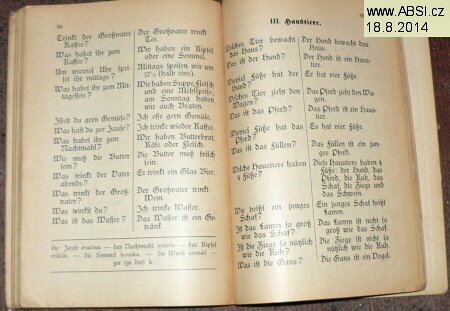 www.ABSI.cz
18.8.2014
98
Trinkt der Großvater
Kaffee?
Was habet ihr zum
Um wieviel Uhr spei-
set ihr mittags?
Was habet ihr zum Mit-
tagessen?
Issest du gern Gemüse?
Was hast du zur Jause?
Was habet ihr zum
Nachtmahl?
Wie muß die Butter
sein?
Was trinkt der Vater
abends?
Was trinkt der Groß-
vater?
Was trinkst du?
Was ist das Wasser?
Der Großvater trinkt
Tee.
Wir haben ein Kipfel
oder eine Semmel.
Mittags speisen wir um
(halb eins).
Wir haben Suppe, Fleisch
und eine Mehlspeise;
am Sonntag haben
wir auch Braten.
Ich esse gern Gemüse.
Ich trinke wieder Kaffee.
Wir haben Butterbrot,
Käse oder Fleisch.
Die Butter muß frisch
sein.
Er trinkt ein Glas Bier.
Der Großvater trinkt
Wein.
Ich trinke Wasser.
Das Wasser ist ein Ge-
tränk.
die Jause svačina — das Nachtmahl večeře — das Kipfel
rohlík — die Semmel houska — die Wurst
zur (zu der) k.
III. Haustiere.
Welches Tier bewacht das
Haus?
Was ist der Hund?
Wieviel Füße hat der
Hund?
Welches Tier zieht den
Wagen?
Was ist das Pferd?
Wieviel Füße hat das
Pferd?
Was ist das Füllen?
Welche Haustiere haben
4 Füße?
Wie heißt ein junges
Schaf?
Ist das Lamm so groß
wie das Schaf?
Ist die Ziege so nützlich
wie die Kuh?
Was ist die Gans?
Der Hund bewacht das
Haus.
Der Hund ist ein Haus-
tier.
Er hat vier Füße.
Das Pferd zieht den Wa-
gen.
Das Pferd ist ein Haus-
tier.
Er hat vier Füße.
Das Füllen ist ein jun-
ges Pferd.
Viele Haustiere haben 4
Füße: der Hund, das
Pferd, die Kuh, das
Schaf, die Ziege und
das Schwein.
Ein junges Schaf heißt
Lamm.
Das Lamm ist nicht so
groß wie das Schaf.
Die Ziege ist nicht so
nützlich wie die Kuh.
Die Gans ist ein Vogel.